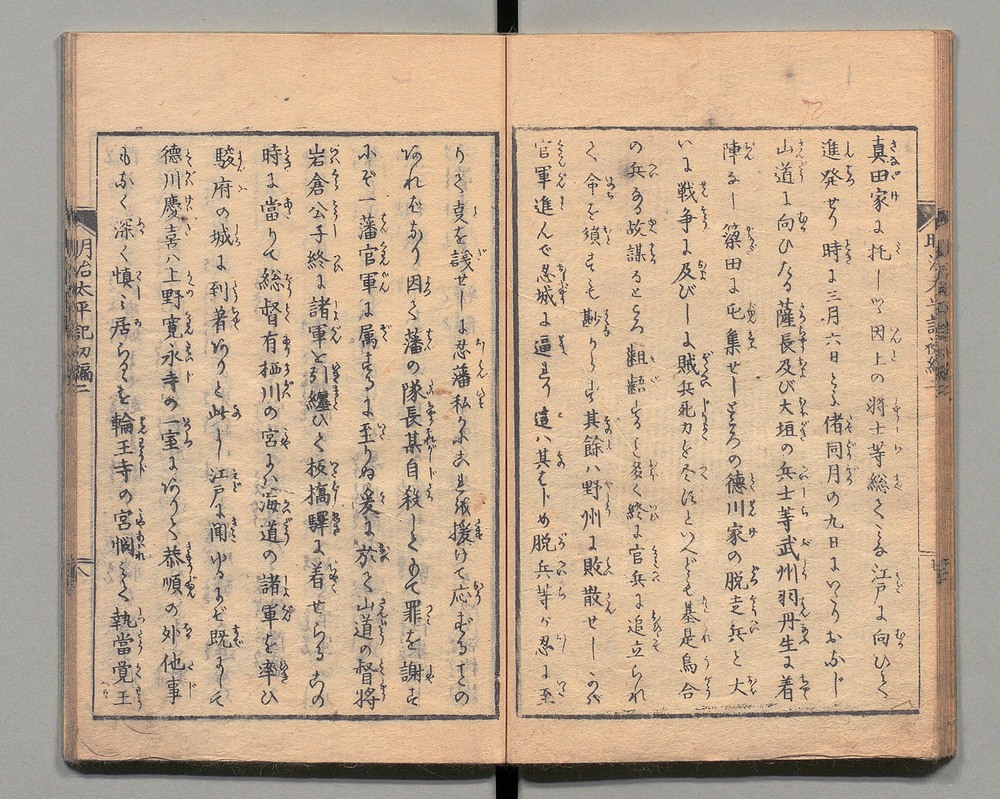 真田家に托しツゝ因上の将士等総て江戸に向ひて
進発せり時に三月六日とぞ偖同月の九日にいたりおなじ
山道に向ひたる薩長及び大垣の兵士等武州羽丹生に着
陣なし簗田に屯集せしところの徳川家の脱走兵と大
いに戦争に及びしに賊兵死力を尽すといへども基是烏合
の兵なる故謀るところ齟齬すること多く終に官兵に追立られ
て命を殞すもの尠からず其餘ハ野州に敗散せしかバ
官軍進んで忍城に逼れり這ハ其はじめ脱兵等が忍に至
りて走を議せしに忍藩私かにこれを援けて応ずることの
あれバなり因て藩の隊長某自殺してもて罪を謝す
にぞ一藩官軍に属するに至りぬ爰に於て山道の督将
岩倉公子終に諸軍を引纏ひて板撟驛に着せらるこの
時に當りて総督有栖川の宮にハ海道の諸軍を率ひ
駿府の城に到着ありと此し江戸に聞ゆるぞ既にして
徳川慶喜ハ上野寛永寺の一室にありて恭順の外他事
もなく深く慎み居らるゝを輪王寺の宮憫て執當覚王
明治太平記初編二
八